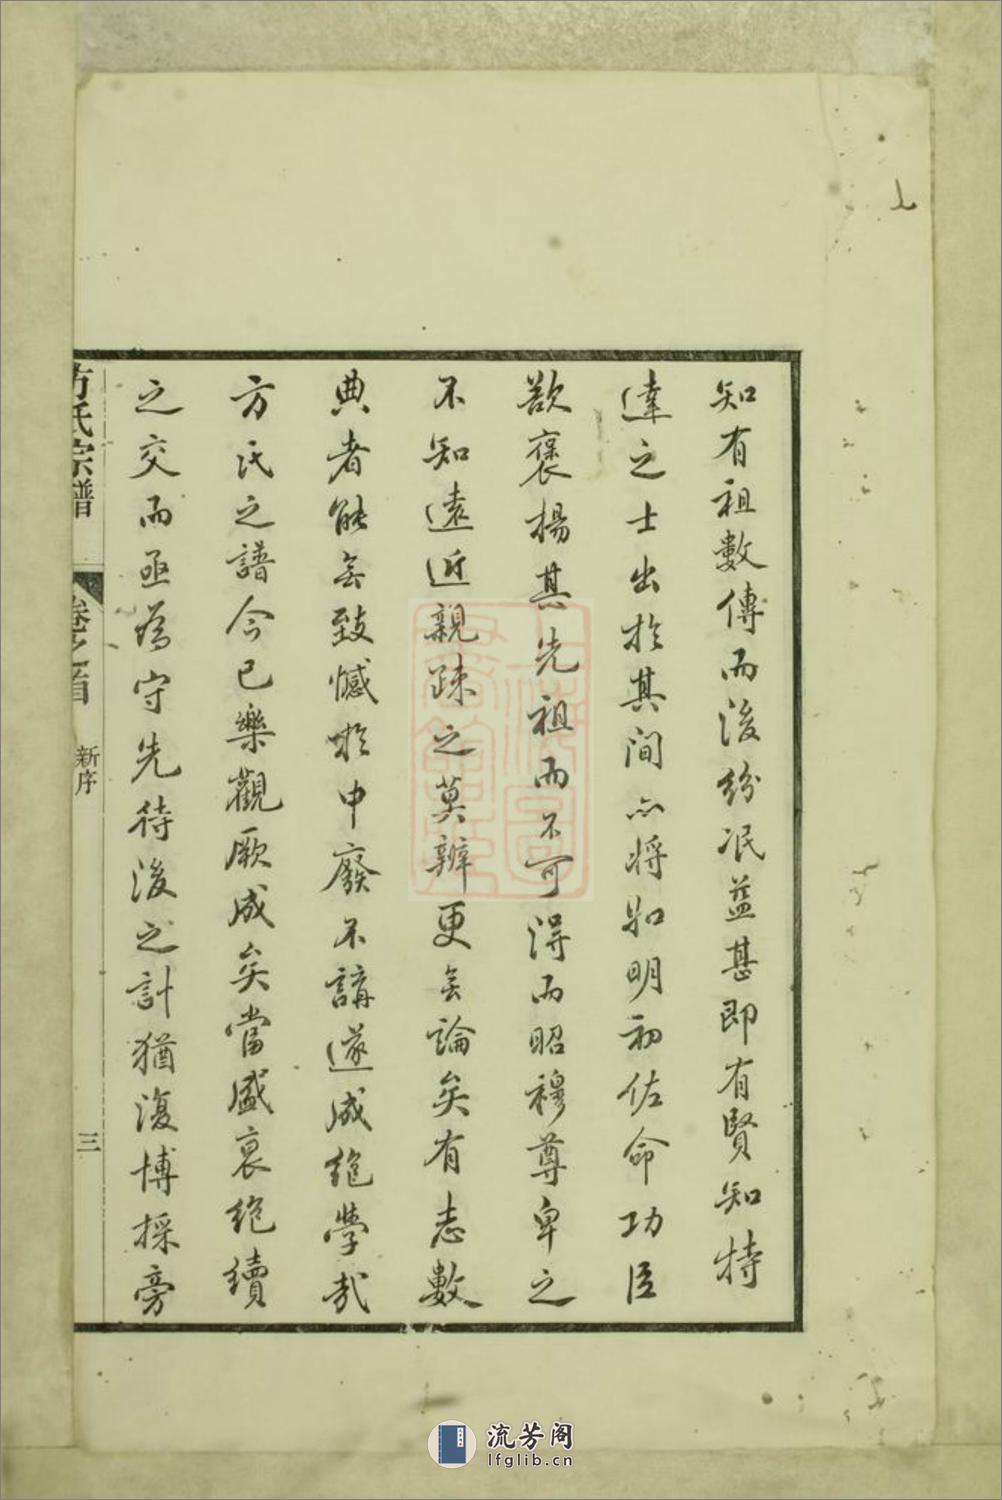 知有祖數傳而後紛泯益甚即有賢知特
達之士出於其間亦將如明初佐命功臣
欲褒揚其先祖而不可得而昭穆尊卑之
不知遠近親疎之莫辨更無論矣有志數
典者能無致憾於中廢不講遂成絕學哉
方氏之譜今已樂觀厥成矣當盛衰絕續
之交而亟為守先待後之計猶復博採旁
方氏宗譜
卷之首
新序
三
流芳阁
lfglib.cn